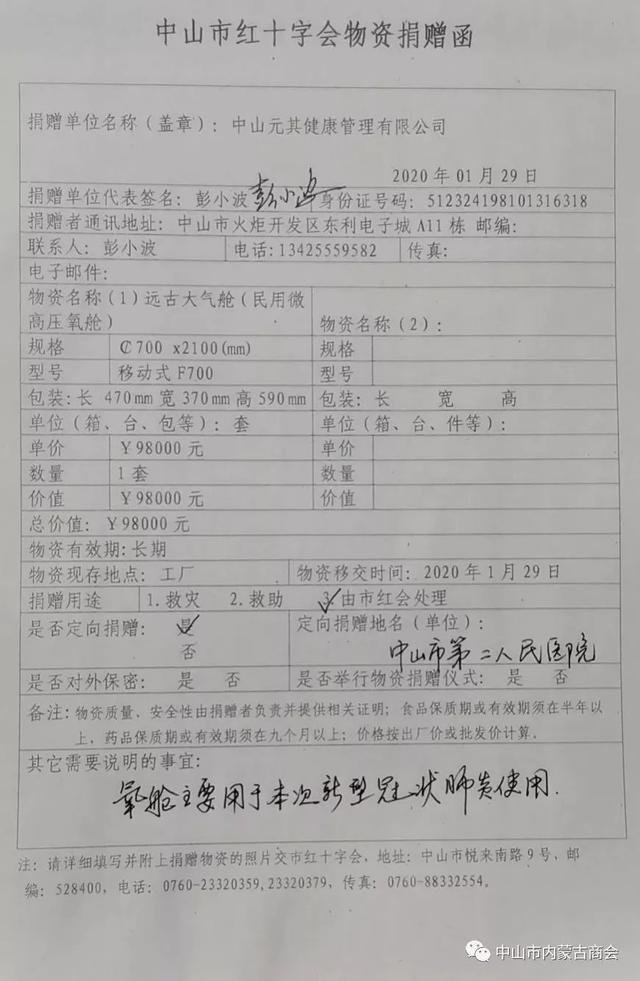 中山市红十字会物资捐赠函
捐赠单位名称（盖章）：中山元其健康管理有限公司
2020 年 01 月 29 日
捐赠单位代表签名：彭小波 彭小波 身份证号码：512324198101316318
捐赠者通讯地址：中山市火炬开发区东利电子城 A11 栋 邮编：
联系人：彭小波 电话：13425559582 传真：
电子邮件：
物资名称（1）远古大气舱（民用微高压氧舱） 物资名称（2）：
规格 ₡700 x2100(mm) 规格
型号 移动式 F700 型号
包装：长 470mm 宽 370mm 高 590mm 包装：长 宽 高
单位（箱、台、包等）：套 单位（箱、台、件等）：
单价 ￥98000 元 单价
数量 1 套 数量
价值 ￥98000 元 价值
总价值：￥98000 元
物资有效期：长期
物资现存地点：工厂 物资移交时间：2020 年 1 月 29 日
捐赠用途 1.救灾 2.救助 3.由市红会处理
是否定向捐赠：是 定向捐赠地名（单位）：
否 中山市第二人民医院
是否对外保密：是 否 是否举行物资捐赠仪式：是 否
备注：物资质量、安全性由捐赠者负责并提供相关证明；食品保质期或有效期须在半年以
上，药品保质期或有效期须在九个月以上；价格按出厂价或批发价计算。
其它需要说明的事宜：
氧舱主要用于本次新型冠状肺炎使用.
注：请详细填写并附上捐赠物资的照片交市红十字会，地址：中山市悦来南路 9 号，邮
编：528400，电话：0760-23320359,23320379，传真：0760-88332554。
中山市内蒙古商会